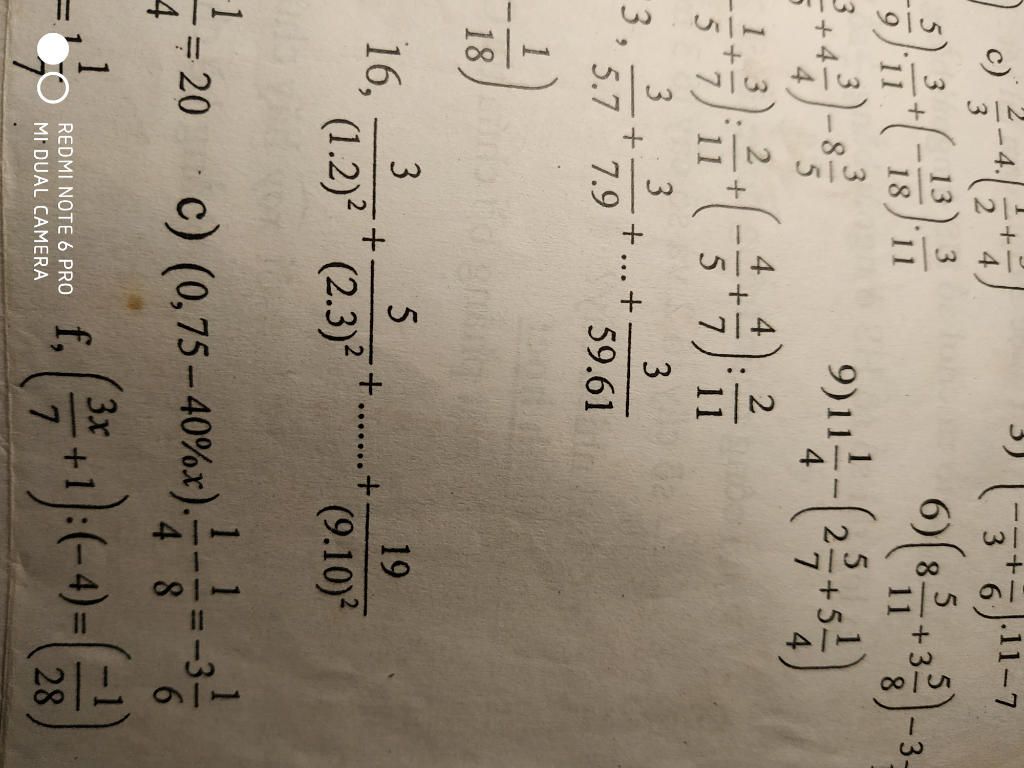 c) 2/3 - 4.(1/2 + 3/4) 3) .11 - 7
5/9).3/11 + (-13/18).3/11 6)(8 5/11 + 3 5/8) - 3
+ 4 3/4) - 8 3/5 9)11 1/4 - (2 5/7 + 5 1/4)
-1/5 + 3/7) : 2/11 + (-4/5 + 4/7) : 2/11
3, 3/5.7 + 3/7.9 + ... + 3/59.61
-1/18)
16, 3/(1.2)² + 5/(2.3)² + ........ + 19/(9.10)²
1/4 = 20 c) (0,75 - 40%x).1/4 - 1/8 = -3 1/6
= 1/7 f, (3x/7 + 1):(-4) = (-1/28)
REDMI NOTE 6 PRO
MI DUAL CAMERA